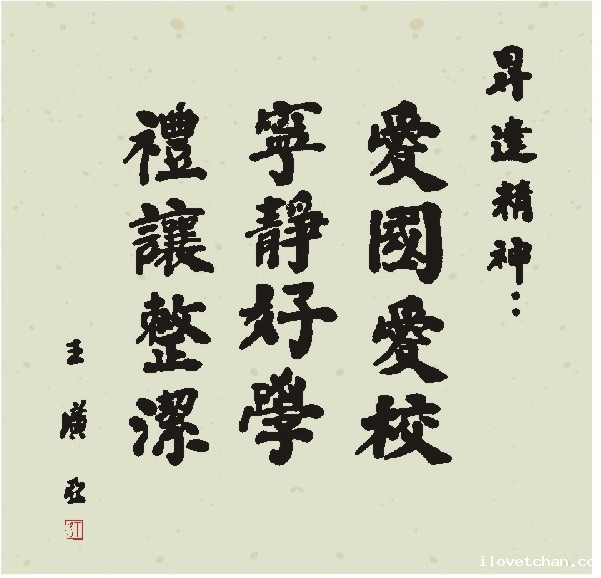 昇達精神：
愛國愛校
寧靜好學
禮讓整潔
王廣亞
ilovetchan.co